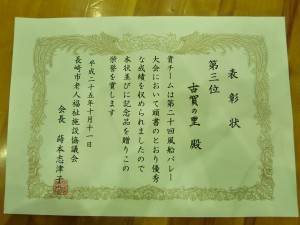 表彰状
第三位
古賀の里 殿
貴チームは第二十回風船バレー
大会において頭書のとおり優秀
な成績を収められましたので
本状並びに記念品を贈りこの
栄誉を賞します
平成二十五年十月十一日
長崎市老人福祉施設協議会
会長 蒔本志津子